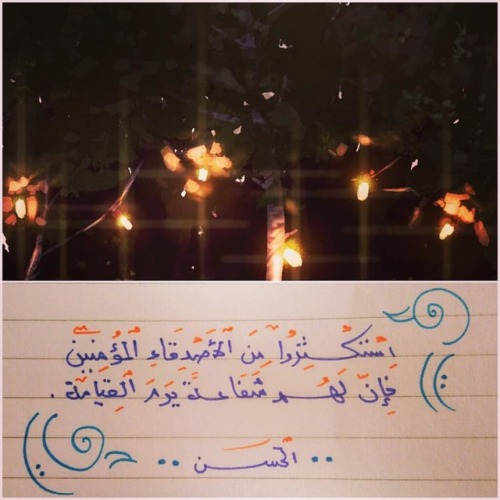 اِسْتَكْثِرُوا مِنَ الْأَصْدِقَاءِ الْمُؤْمِنِينَ
فَإِنَّ لَهُمْ شَفَاعَةً يَوْمَ الْقِيَامَةِ .
.. الحَسَن ..